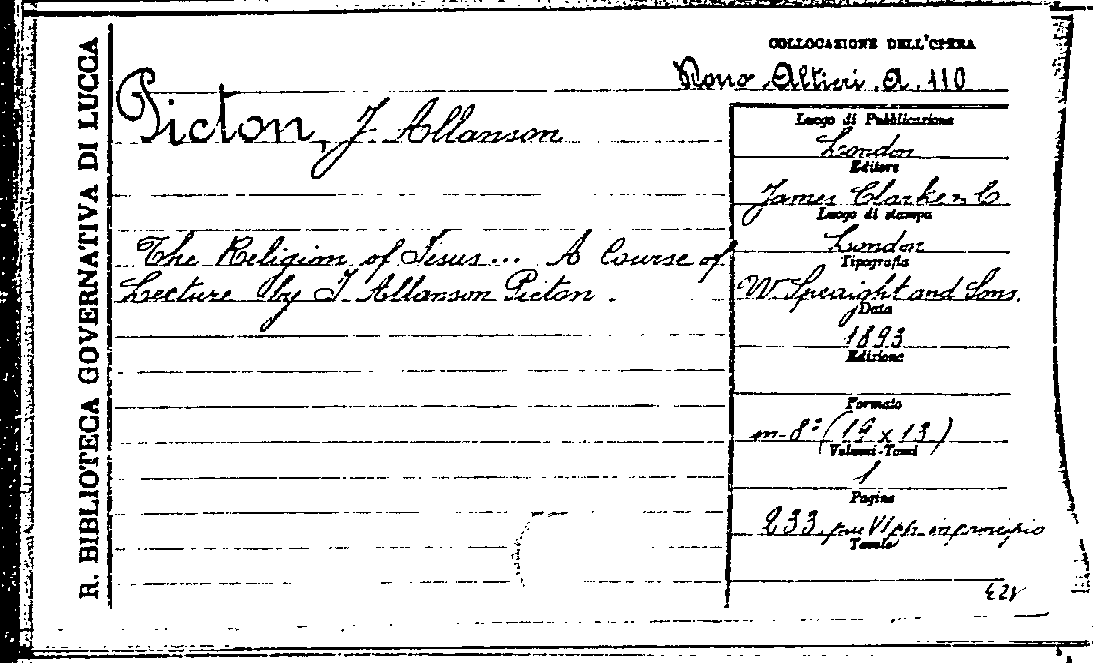 R. BIBLIOTECA GOVERNATIVA DI LUCCA
COLLOCAZIONE DELL'OPERA
Altieri A. 110
Picton, J. Allanson
The Religion of Jesus... A Course of
Lecture by J. Allanson Picton.
Luogo di Pubblicazione
London
Editore
James Clarke & C
Luogo di stampa
London
Tipografia
W. Speaight and Sons.
Data
1893
Edizione
Formato
in-8° (19 x 13)
Volumi-Tomi
1
Pagine
233 più VI in principio
Tavole